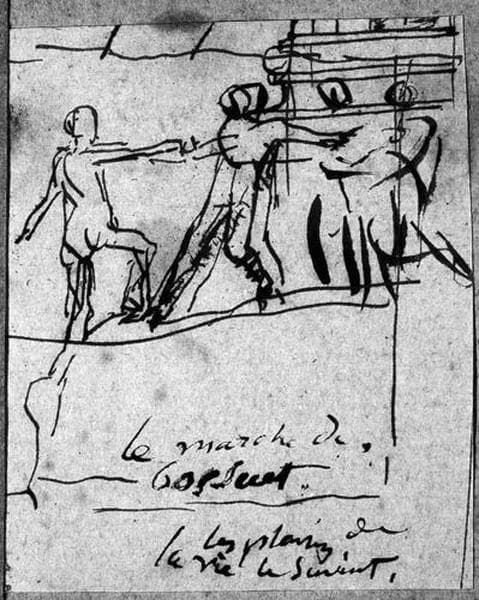 la marche de
Bossuet.
les plaisirs de
la vie le suivent.